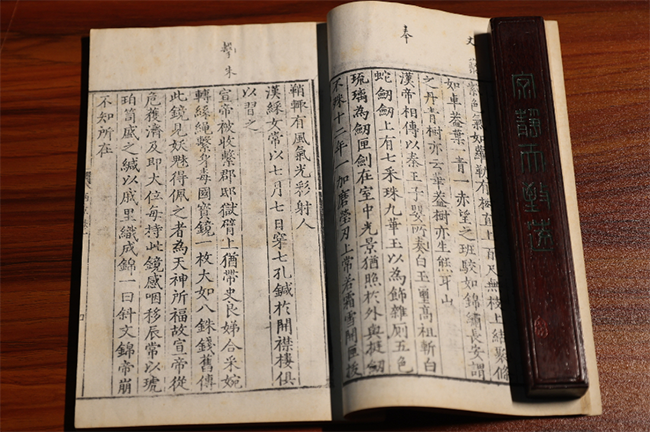 氣如蘿勒有樹直上百尺無枝上結叢條
如車蓋葉一青一赤望之班駮如錦繡長安謂
之丹青樹亦云華蓋樹亦生熊耳山
漢帝相傳以秦王子嬰所奉白玉璽高祖斬白
蛇劒劒上有七采珠九華玉以為飾雜厠五色
琉璃為劒匣劒在室中光景猶照於外與挺劒
不殊十二年一加磨瑩刃上常若霜雪開匣拔
鞘輒有風氣光彩射人
漢綵女常以七月七日穿七孔鍼於開襟樓俱
以習之
宣帝被收繫郡邸獄臂上猶帶史良娣合采婉
轉絲繩繫身毒國寶鏡一枚大如八銖錢舊傳
此鏡見妖魅得佩之者為天神所福故宣帝從
危獲濟及即大位每持此鏡感咽移辰常以琥
珀笥盛之緘以戚里織成錦一曰斜文錦帝崩
不知所在